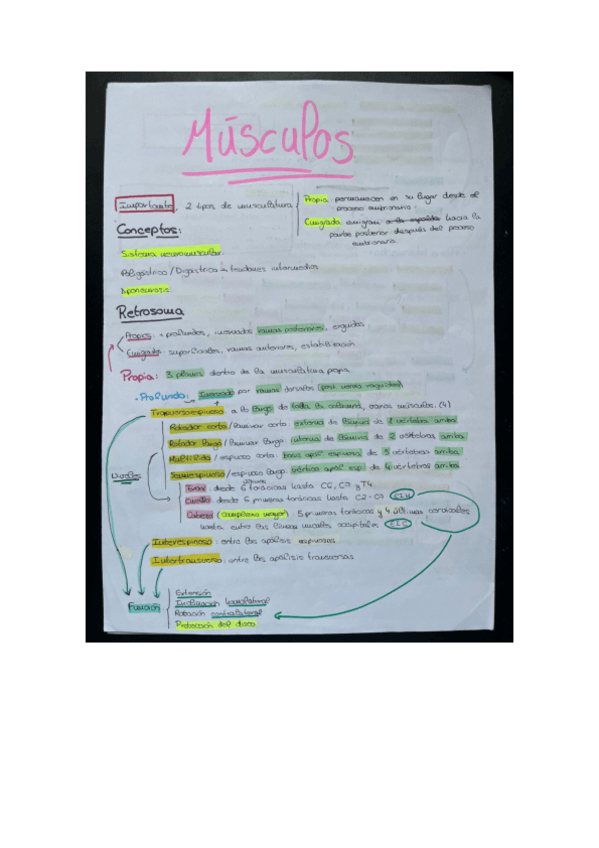 Músculos
Importante, 2 tipos de musculatura
Propia: permanecen en su lugar desde el
proceso embrionario.
Emigrada: emigran hacia la
parte posterior después del proceso
embrionario.
Conceptos:
Sistema neuromuscular.
Poligástrico / Digástrico tendones intermedios
Aponeurosis
Retrosoma
Propios: + profundos, inervados ramas posteriores, erguidos
Emigrados: superficiales, ramas anteriores, estabilización
Propia: 3 planos dentro de la musculatura propia
Profundo: Inervado por ramas dorsales
Transversoespinoso: a lo largo de toda la columna, varios músculos. (4)
Rotador corto / laminar corto: externa de láminas de 1 vértebra arriba
Rotador largo / laminar largo: interna de lámina de 2 vértebras arriba
Multífido / espinoso corto: base apóf espinosa de 3 vértebras arriba
Semiespinoso / espinoso largo: vértice apóf esp. de 4 vértebras arriba
Tórax: desde 6 torácicas hasta C6, C7 y T4
Cuello: desde 6 primeras torácicas hasta C2-C7
Cabeza (complexo mayor): 5 primeras torácicas y 4 últimas cervicales
hasta entre las líneas nucales occipitales
Interespinoso: entre las apófisis espinosas
Intertransverso: entre las apófisis transversas
Función
Extensión
Inclinación homolateral
Rotación contralateral
Protección del disco